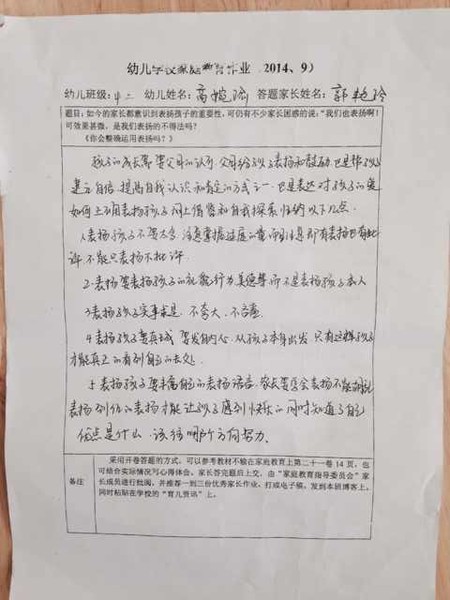 幼儿学校家庭教育作业 2014、9）
幼儿班级：中二 幼儿姓名：高 答题家长姓名：郭艳玲
题目：如今的家长都意识到表扬孩子的重要性，可仍有不少家长困惑的说：“我们也表扬啊！
可效果甚微，是我们表扬的不得法吗？
《你会正确运用表扬吗？》
孩子的成长需要父母的认可，父母给孩子表扬和鼓励，也是帮孩子
建立自信、提高自我认识和肯定的方式之一，也是表达对孩子的爱
如何正确表扬孩子 网上借鉴和自我探索 归纳以下几点
1、表扬孩子不要太多，注意掌握适度 注意即有表扬也有批
评 不能只表扬不批评
2、表扬要表扬孩子的 行为 美德等 而不是表扬孩子本人
3 表扬孩子实事求是、不夸大、不吝啬
4 表扬孩子要真诚 要发自内心，从孩子本身出发 只有这样孩子
才能真正的看到自己的长处
5 表扬孩子要 自己的表扬语言，家长要学会表扬不能
表扬 到位的表扬才能让孩子感到快乐的同时知道了自己
优点是什么，该往哪个方向努力。
备注
采用开卷答题的方式，可以参考教材不输在家庭教育上第二十一卷 14 页，也
可结合实际情况写心得体会。家长答完题后上交，由“家庭教育指导委员会”家
长成员进行批阅，并推荐一到三份优秀家长作业，打成电子稿，发到本班博客上，
同时粘贴在学校的“育儿资讯”上。